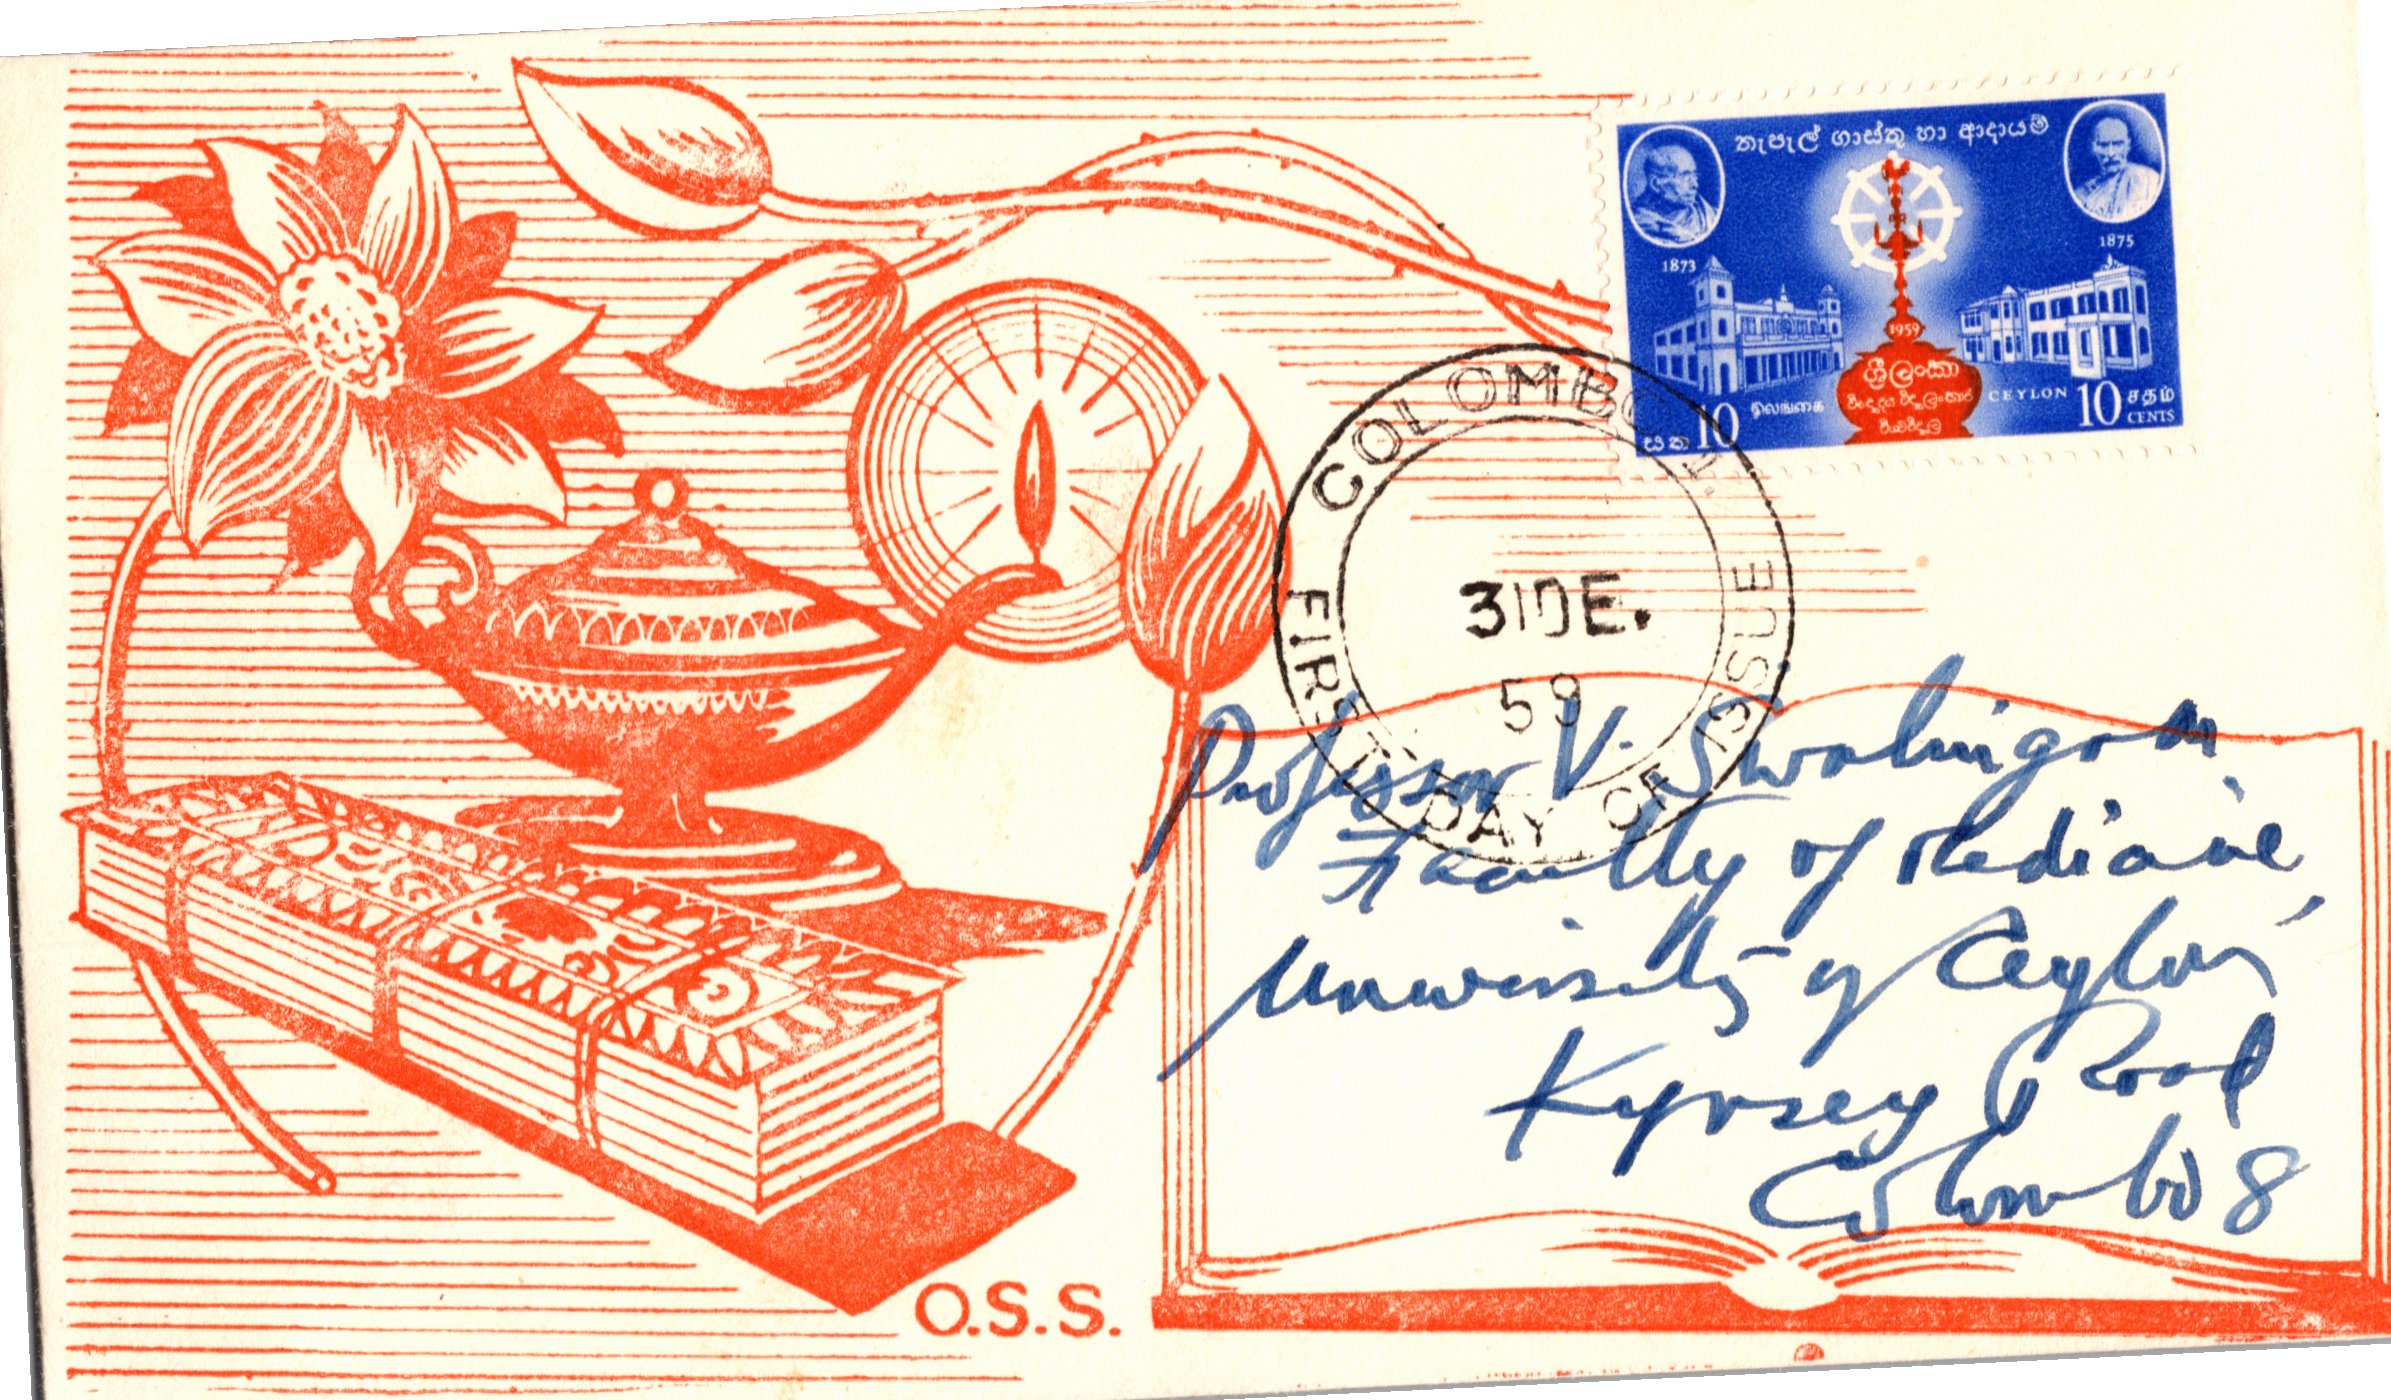 තැපැල් ගාස්තු හා ආදායම්
1873
1875
1959
ශ්‍රී ලංකා
සත 10
இலங்கை
CEYLON
10 சதம்
CENTS
COLOMBO 1.
31 DE.
59
FIRST DAY OF ISSUE
Professor V. Sivalingam
Faculty of Medicine
University of Ceylon,
Kynsey Road
Colombo 8
O.S.S.